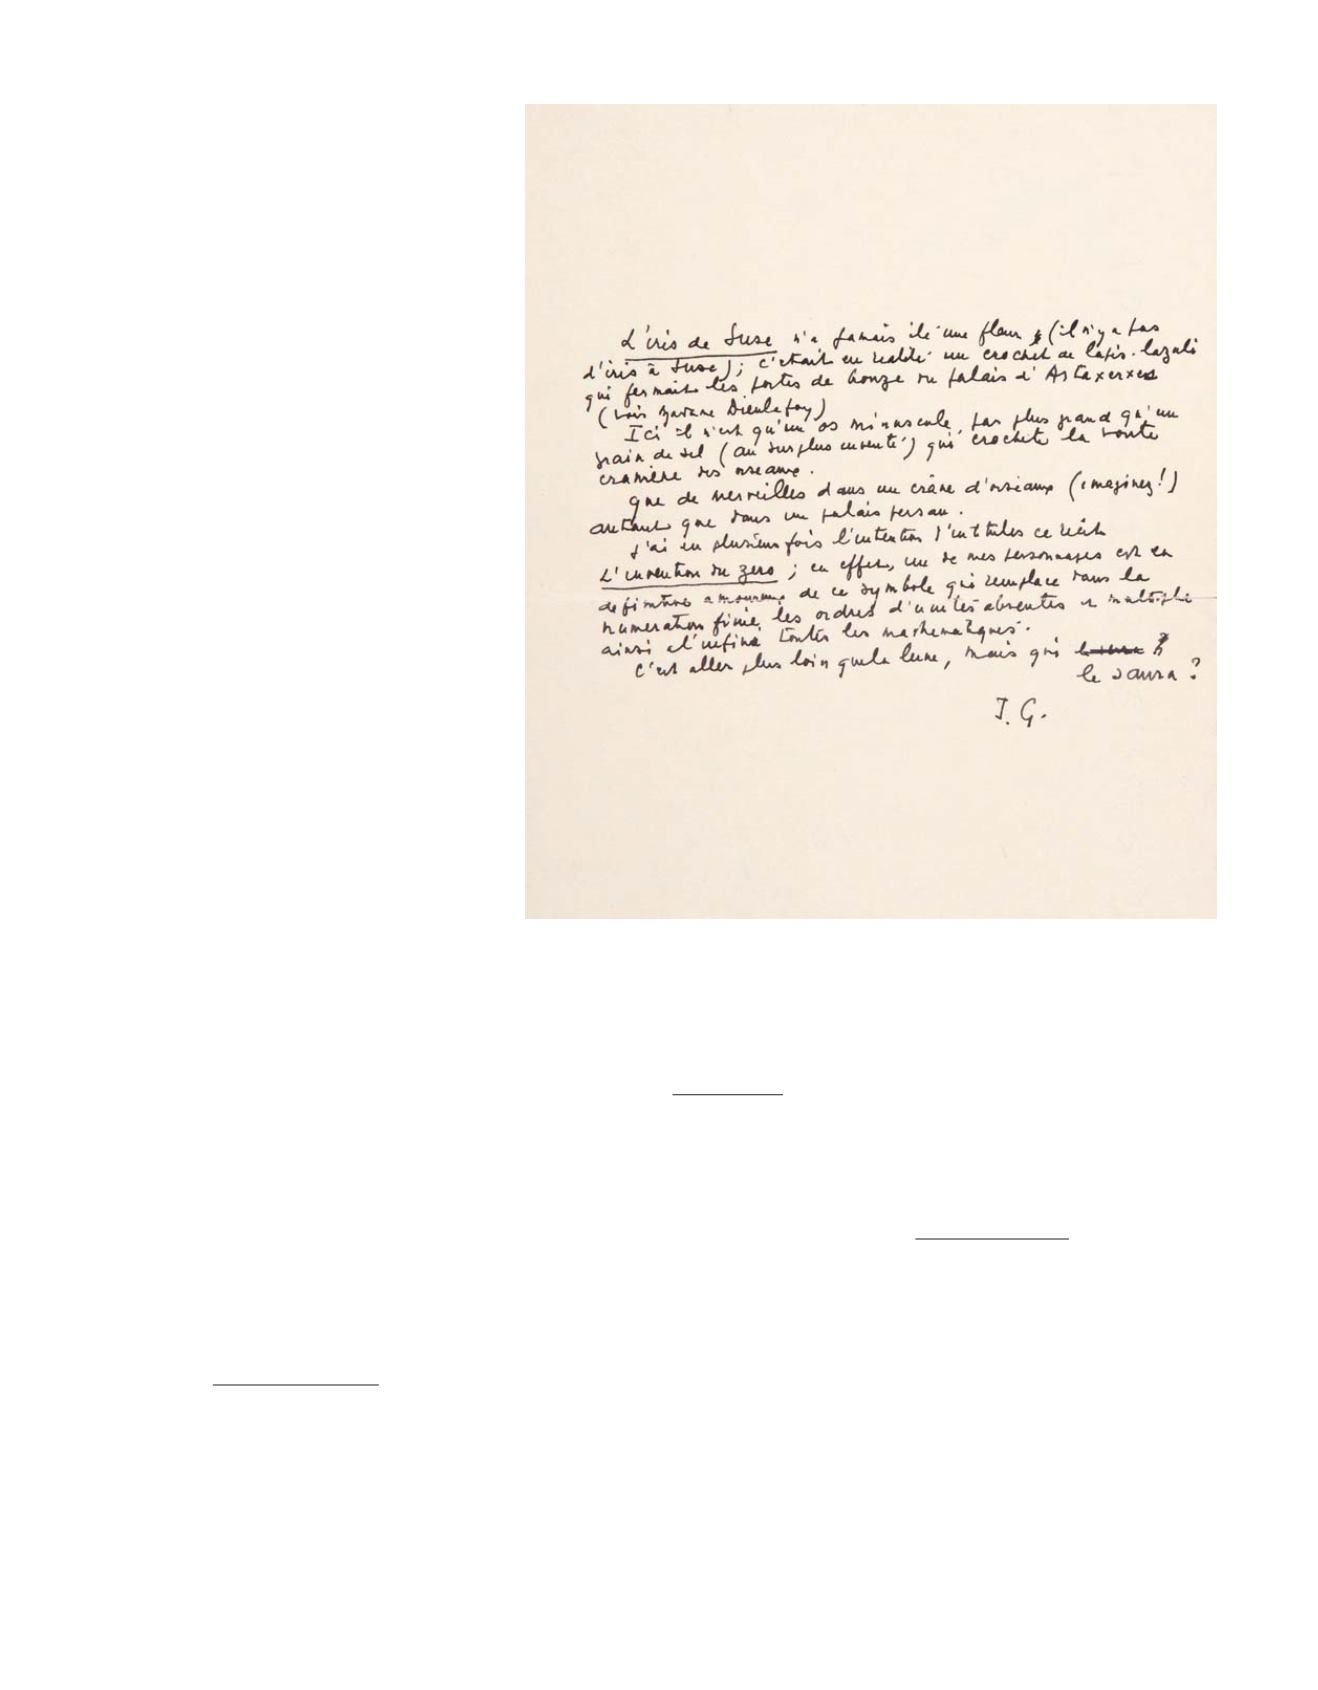 L'iris de Suse n'a jamais été une fleur (il n'y a pas
d'iris à Suse) ; c'était en réalité un crochet de lapis-lazuli
qui fermait les portes de bronze du palais d'Artaxerxes
(voir Madame Dieulafoy)
Ici il n'est qu'un os minuscule, pas plus grand qu'un
grain de sel (au surplus inventé) qui crochète la voute
cranière des oiseaux.
Que de merveilles dans un crâne d'oiseaux (imaginez!)
autant que dans un palais persan.
J'ai eu plusieurs fois l'intention d'intituler ce récit
L'invention du zero ; en effet, un de mes personnages est en
definitive amoureux de ce symbole qui remplace dans la
numeration finie, les ordres d'unités absentes et multiplie
ainsi à l'infini toutes les mathematiques.
C'est aller plus loin que la lune, mais qui
le saura ?
J. G.